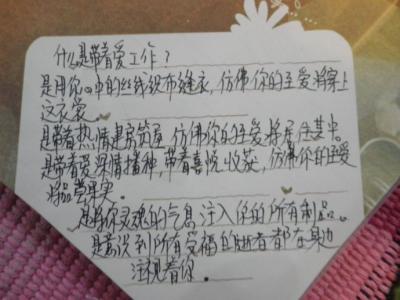 什么是带着爱工作？
是用你心中的丝线织布缝衣，仿佛你的至爱将穿上
这衣裳。
是带着热情建房筑屋，仿佛你的至爱将居住其中。
是带着深情播种，带着喜悦收获，仿佛你的至爱
将品尝果实。
是将你灵魂的气息注入你的所有制品。
是意识到所有受福的逝者都在身边
注视着你。